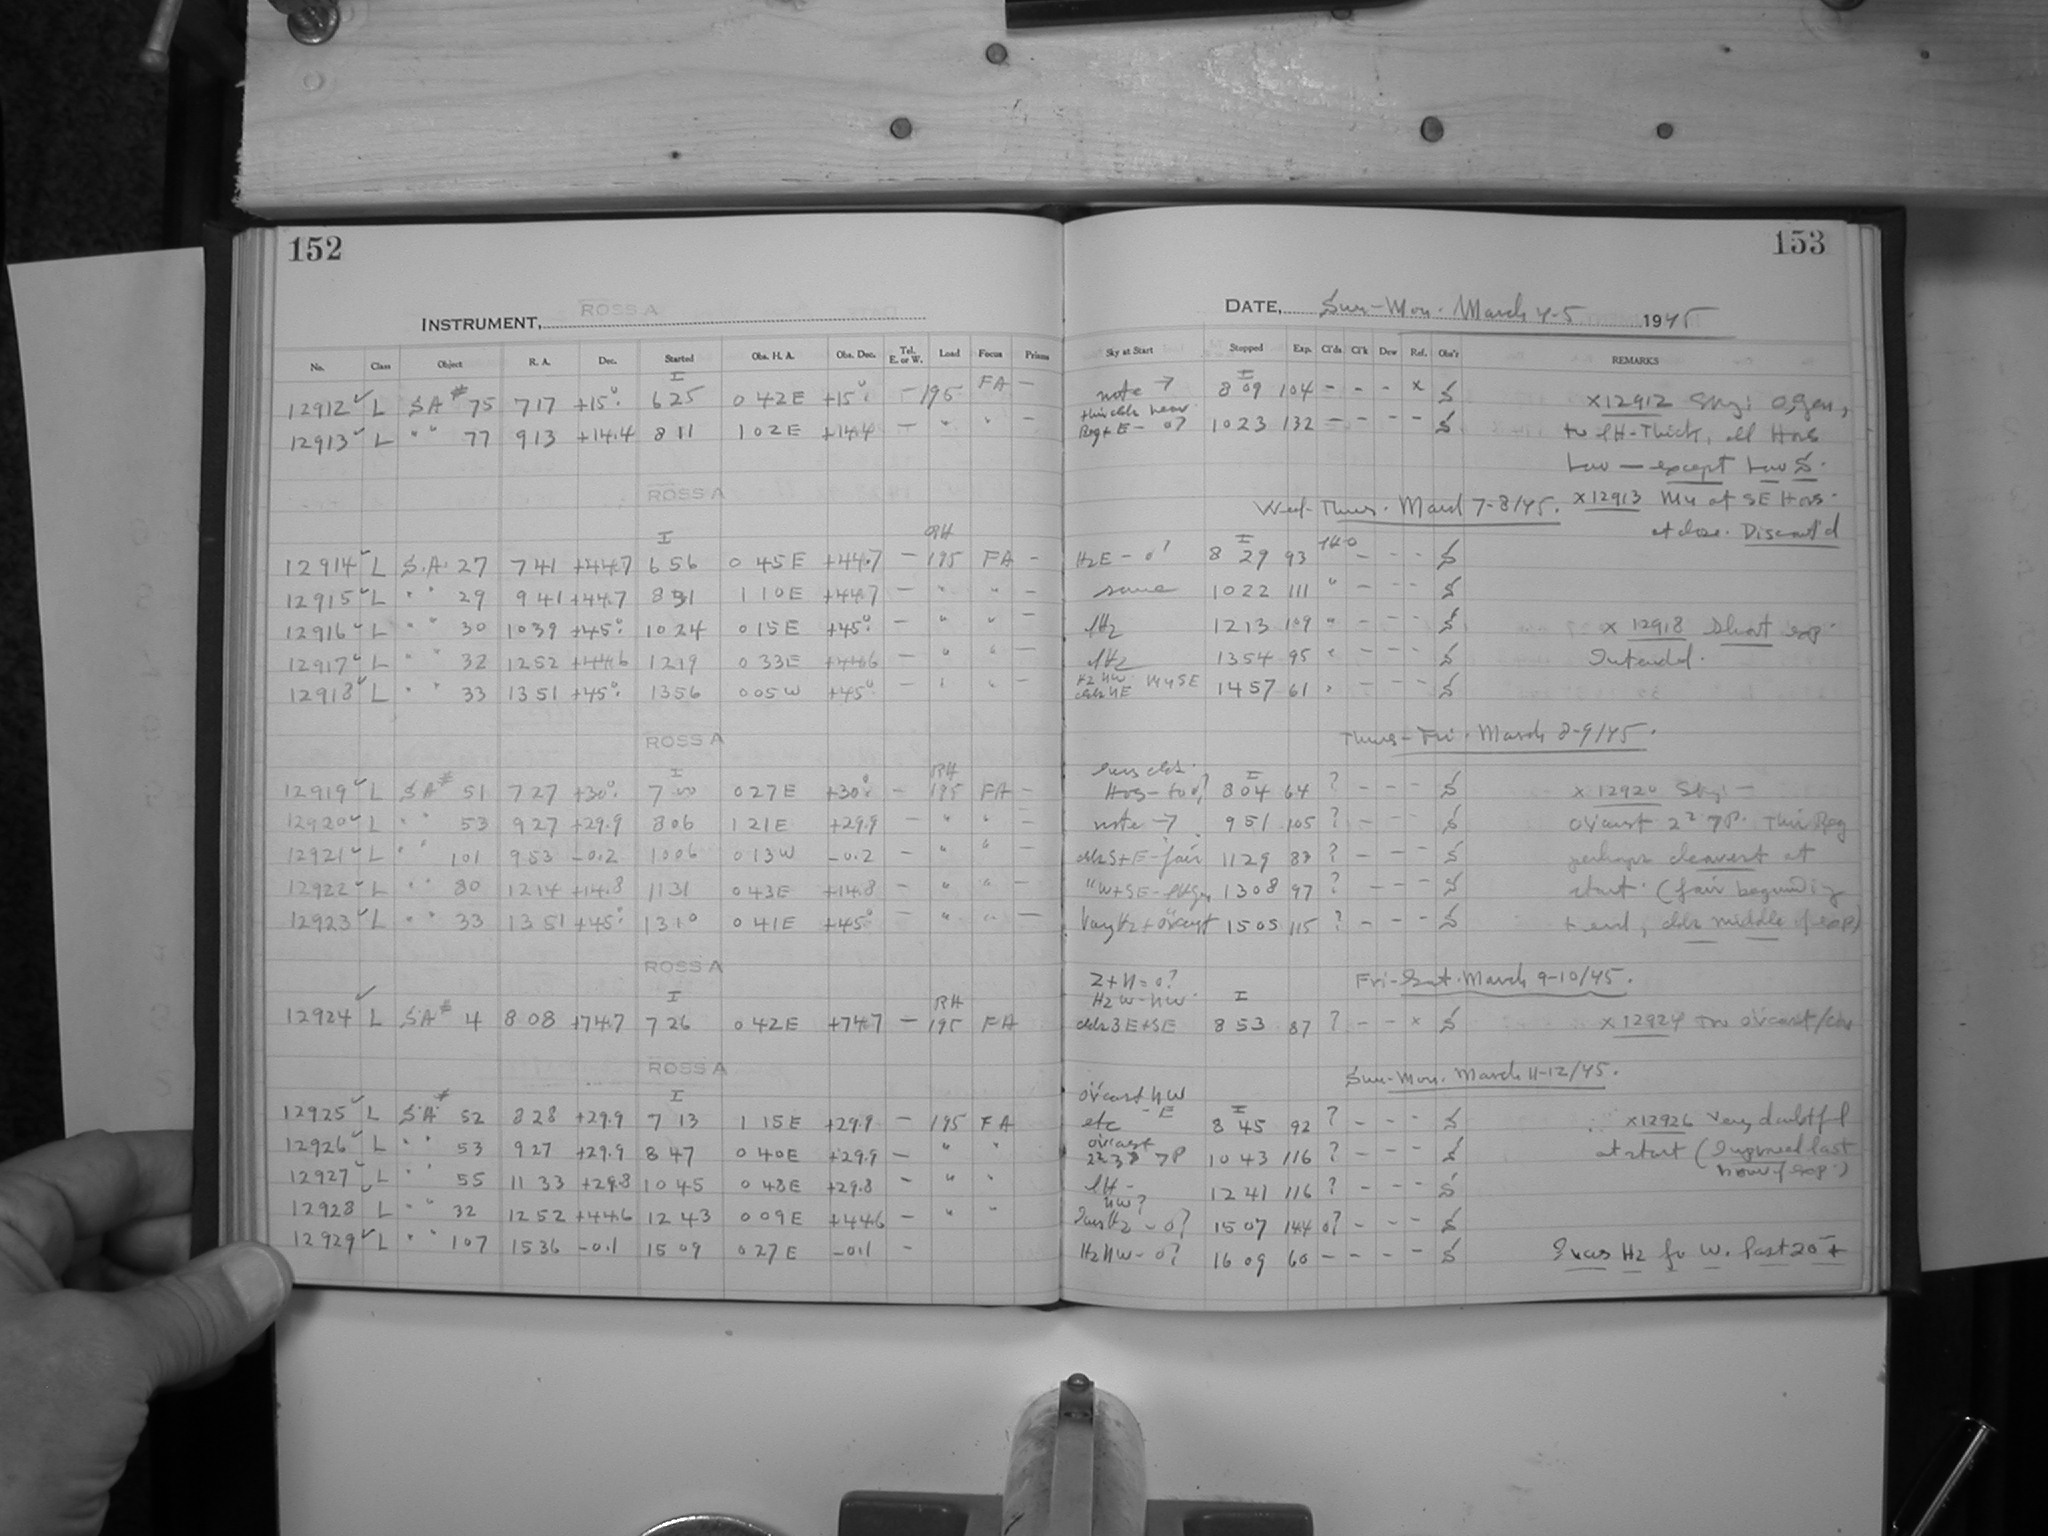 152
153
INSTRUMENT, ROSS A
DATE, Sun-Mon. March 4-5 1945
No. Class Object R. A. Dec. Started Obs. H. A. Obs. Dec. Tel. E. or W. Load Focus Prisms Sky at Start Stopped Exp. Cl'ds Cl'k Dew Ref. Obs'r REMARKS
I I
12912 L SA# 75 717 +15° 625 0 42E +15° - 195 FA - note → 8 09 104 - - - x S x12912 Sky:
12913 L " " 77 913 +14.4 811 1 02E +14.4 - " " - 1023 132 - - - - S to lH-Thick, all Hors
Low — except Low S.
ROSS A
Wed-Thurs. March 7-8/45. x12913 at SE Hors.
at close. Discont'd
I I
12914 L S.A. 27 741 +44.7 656 0 45E +44.7 - 195 FA - HzE - 0? 8 29 93 - - - S
12915 L " " 29 941 +44.7 831 1 10E +44.7 - " " - same 1022 111 " - - - S
12916 L " " 30 1039 +45° 1024 0 15E +45° - " " - lHz 1213 109 " - - - S x 12918 Short exp.
12917 L " " 32 1252 +44.6 1219 0 33E +44.6 - " " - lHz 1354 95 " - - - S Intended.
12918 L " " 33 1351 +45° 1356 0 05W +45° - " " - Hz NW clds NE 1457 61 " - - - S
ROSS A
Thurs-Fri. March 8-9/45.
I RH I
12919 L SA# 51 727 +30° 700 0 27E +30° - 195 FA - Hors - to 0? 8 04 64 ? - - - S x 12920 Sky: —
12920 L " " 53 927 +29.9 806 1 21E +29.9 - " " - note → 951 105 ? - - - S ov'cast Thin Reg
12921 L " " 101 953 -0.2 1006 0 13W -0.2 - " " - clds S+E - fair 1129 83 ? - - - S perhaps clearest at
12922 L " " 80 1214 +14.8 1131 0 43E +14.8 - " " - "W+SE - 1308 97 ? - - - S start. (fair beginning
12923 L " " 33 1351 +45° 1310 0 41E +45° - " " - Vary Hz + ov'cast 1505 115 ? - - - S + end, clds middle of exp)
ROSS A
Z+N = 0? Fri-Sat. March 9-10/45.
I RH Hz W-NW I
12924 L SA# 4 8 08 +74.7 7 26 0 42E +74.7 - 195 FA clds E+SE 8 53 87 ? - - x S x 12924 ov'cast
ROSS A
Sun-Mon. March 11-12/45.
I ov'cast NW I
12925 L SA# 52 828 +29.9 7 13 1 15E +29.9 - 195 FA etc - E 8 45 92 ? - - - S x12926 Very doubtful
12926 L " " 53 927 +29.9 847 0 40E +29.9 - " " ov'cast 1043 116 ? - - - S at start (Improved last
12927 L " " 55 1133 +29.8 1045 0 48E +29.8 - " " lH - NW? 1241 116 ? - - - S hour of exp.)
12928 L " " 32 1252 +44.6 1243 0 09E +44.6 - " " 1507 144 0? - - - S
12929 L " " 107 1536 -0.1 1509 0 27E -0.1 - Hz NW - 0? 1609 60 - - - - S Hz W. last 20 ±